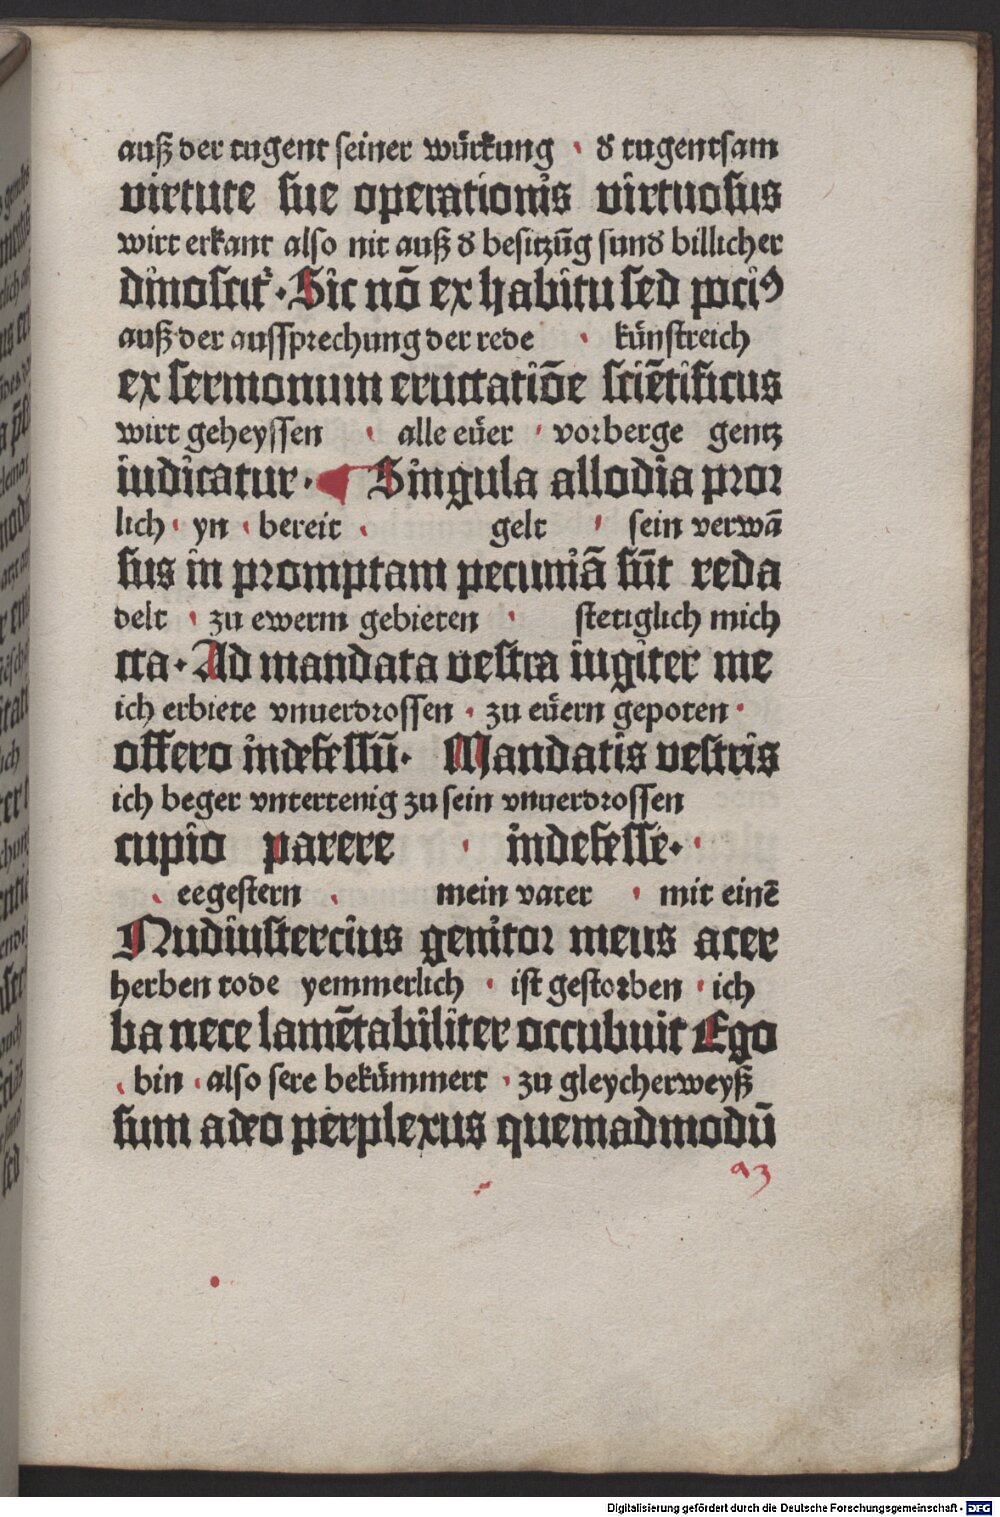 auß der tugent seiner würkung · ꝺ tugentsam
virtute sue operationis virtuosus
wirt erkant also nit auß ꝺ besitzūg sunꝺ billicher
dinoscit᷑ · Sic nō ex habitu sed pociꝰ
auß der aussprechung der rede · künstreich
ex sermonum eructatiōe sciētificus
wirt geheyssen · alle eüer · vorberge gentz
iudicatur · Singula allodia pror
lich · yn · bereit · gelt · sein verwā
sus in promptam pecuniā sūt reda
delt · zu ewerm gebieten · stetiglich mich
cta · Ad mandata vestra iugiter me
ich erbiete vnuerdrossen · zu eüern gepoten ·
offero indefessū · Mandatis vestris
ich beger vntertenig zu sein vnuerdrossen
cupio parere · indefesse · ·
· eegestern · mein vater · mit einē
Nudiustercius genitor meus acer
herben tode yemmerlich · ist gestorben · ich
ba nece lamētabiliter occubuit Ego
· bin · also sere bekümmert · zu gleycherweyß
sum adeo perplexus quemadmodū
a3
Digitalisierung gefördert durch die Deutsche Forschungsgemeinschaft - DFG